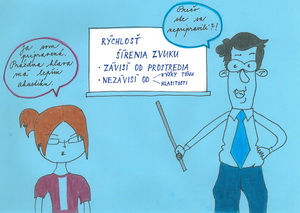 Ja som
pripravená.
Prázdna hlava
má lepšiu
akustiku.
RÝCHLOSŤ
ŠÍRENIA ZVUKU
• ZÁVISÍ OD PROSTREDIA
• NEZÁVISÍ OD
VÝŠKY TÓNU
HLASITOSTI
Prečo
ste sa
nepripravili?!